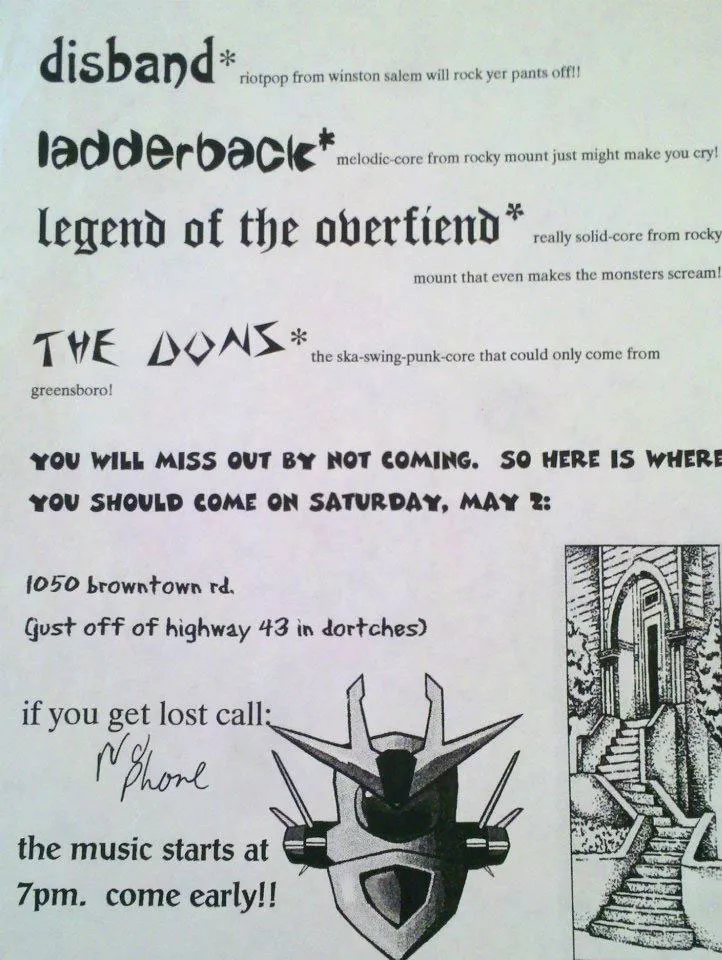 disband* riotpop from winston salem will rock yer pants off!!
ladderback* melodic-core from rocky mount just might make you cry!
legend of the overfiend* really solid-core from rocky
mount that even makes the monsters scream!
THE DONS* the ska-swing-punk-core that could only come from
greensboro!
YOU WILL MISS OUT BY NOT COMING. SO HERE IS WHERE
YOU SHOULD COME ON SATURDAY, MAY 2:
1050 browntown rd.
(just off of highway 43 in dortches)
if you get lost call:
No
Phone
the music starts at
7pm. come early!!